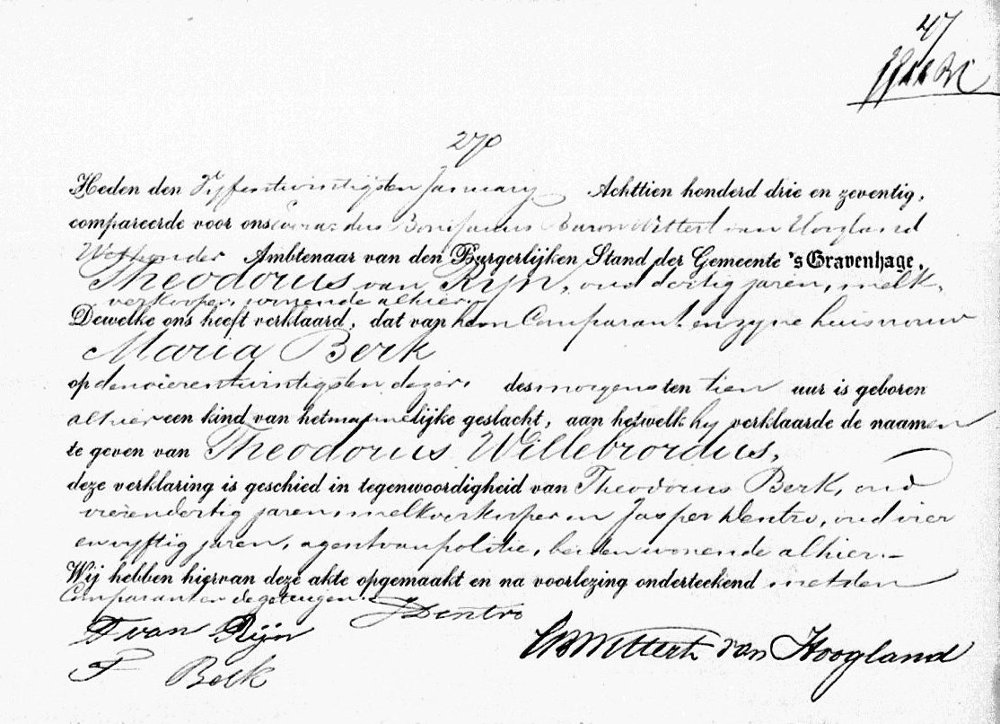 47
270
Heden den Vyfentwintigsten January Achttien honderd drie en zeventig,
compareerde voor ons Everardus Bonifacius Baron Wittert van Hoogland
Wethouder Ambtenaar van den Burgerlijken Stand der Gemeente 's Gravenhage,
Theodorus van Rijn, oud dertig jaren, melk-
verkooper, wonende alhier,
Dewelke ons heeft verklaard, dat van hem Comparant en zyne huisvrouw
Maria Berk
op den vierentwintigsten dezer, des morgens ten tien uur is geboren
alhier een kind van het mannelijke geslacht, aan hetwelk hy verklaarde de naamen
te geven van Theodorus Willebrordus,
deze verklaring is geschied in tegenwoordigheid van Theodorus Berk, oud
vierendertig jaren, melkverkooper en Jasper Dentro, oud vier
en vyftig jaren, agent van politie, beiden wonende alhier.-
Wij hebben hiervan deze akte opgemaakt en na voorlezing onderteekend met den
Comparant en de getuigen.
J Dentro
T van Rijn
EB Wittert van Hoogland
T Berk